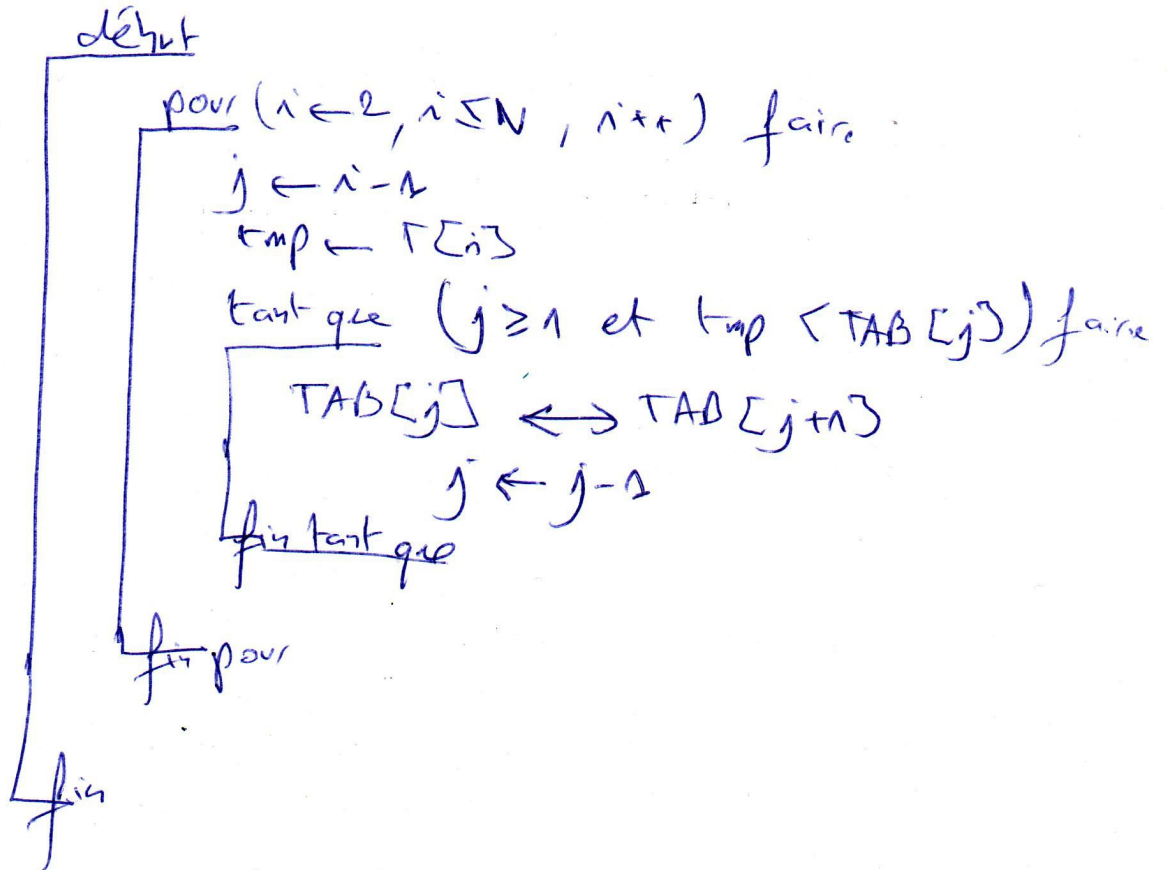 début
pour (i ← 2, i ≤ N, i++) faire
j ← i-1
tmp ← T[i]
tant que (j ≥ 1 et tmp < TAB[j]) faire
TAB[j] ↔ TAB[j+1]
j ← j-1
fin tant que
fin pour
fin